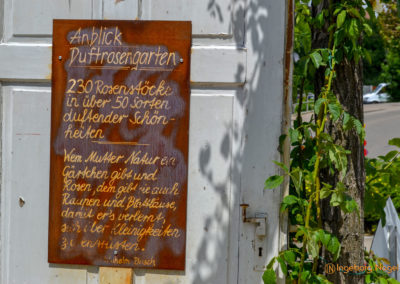 Anblick
Duftrosengarten
230 Rosenstöcke
in über 50 Sorten
duftender Schön-
heiten
Wem Mutter Natur ein
Gärtchen gibt und
Rosen, dem gibt sie auch
Raupen und Blattläuse,
damit er's verlernt,
sich über Kleinigkeiten
zu entrüsten.
Wilhelm Busch
Ingeborg